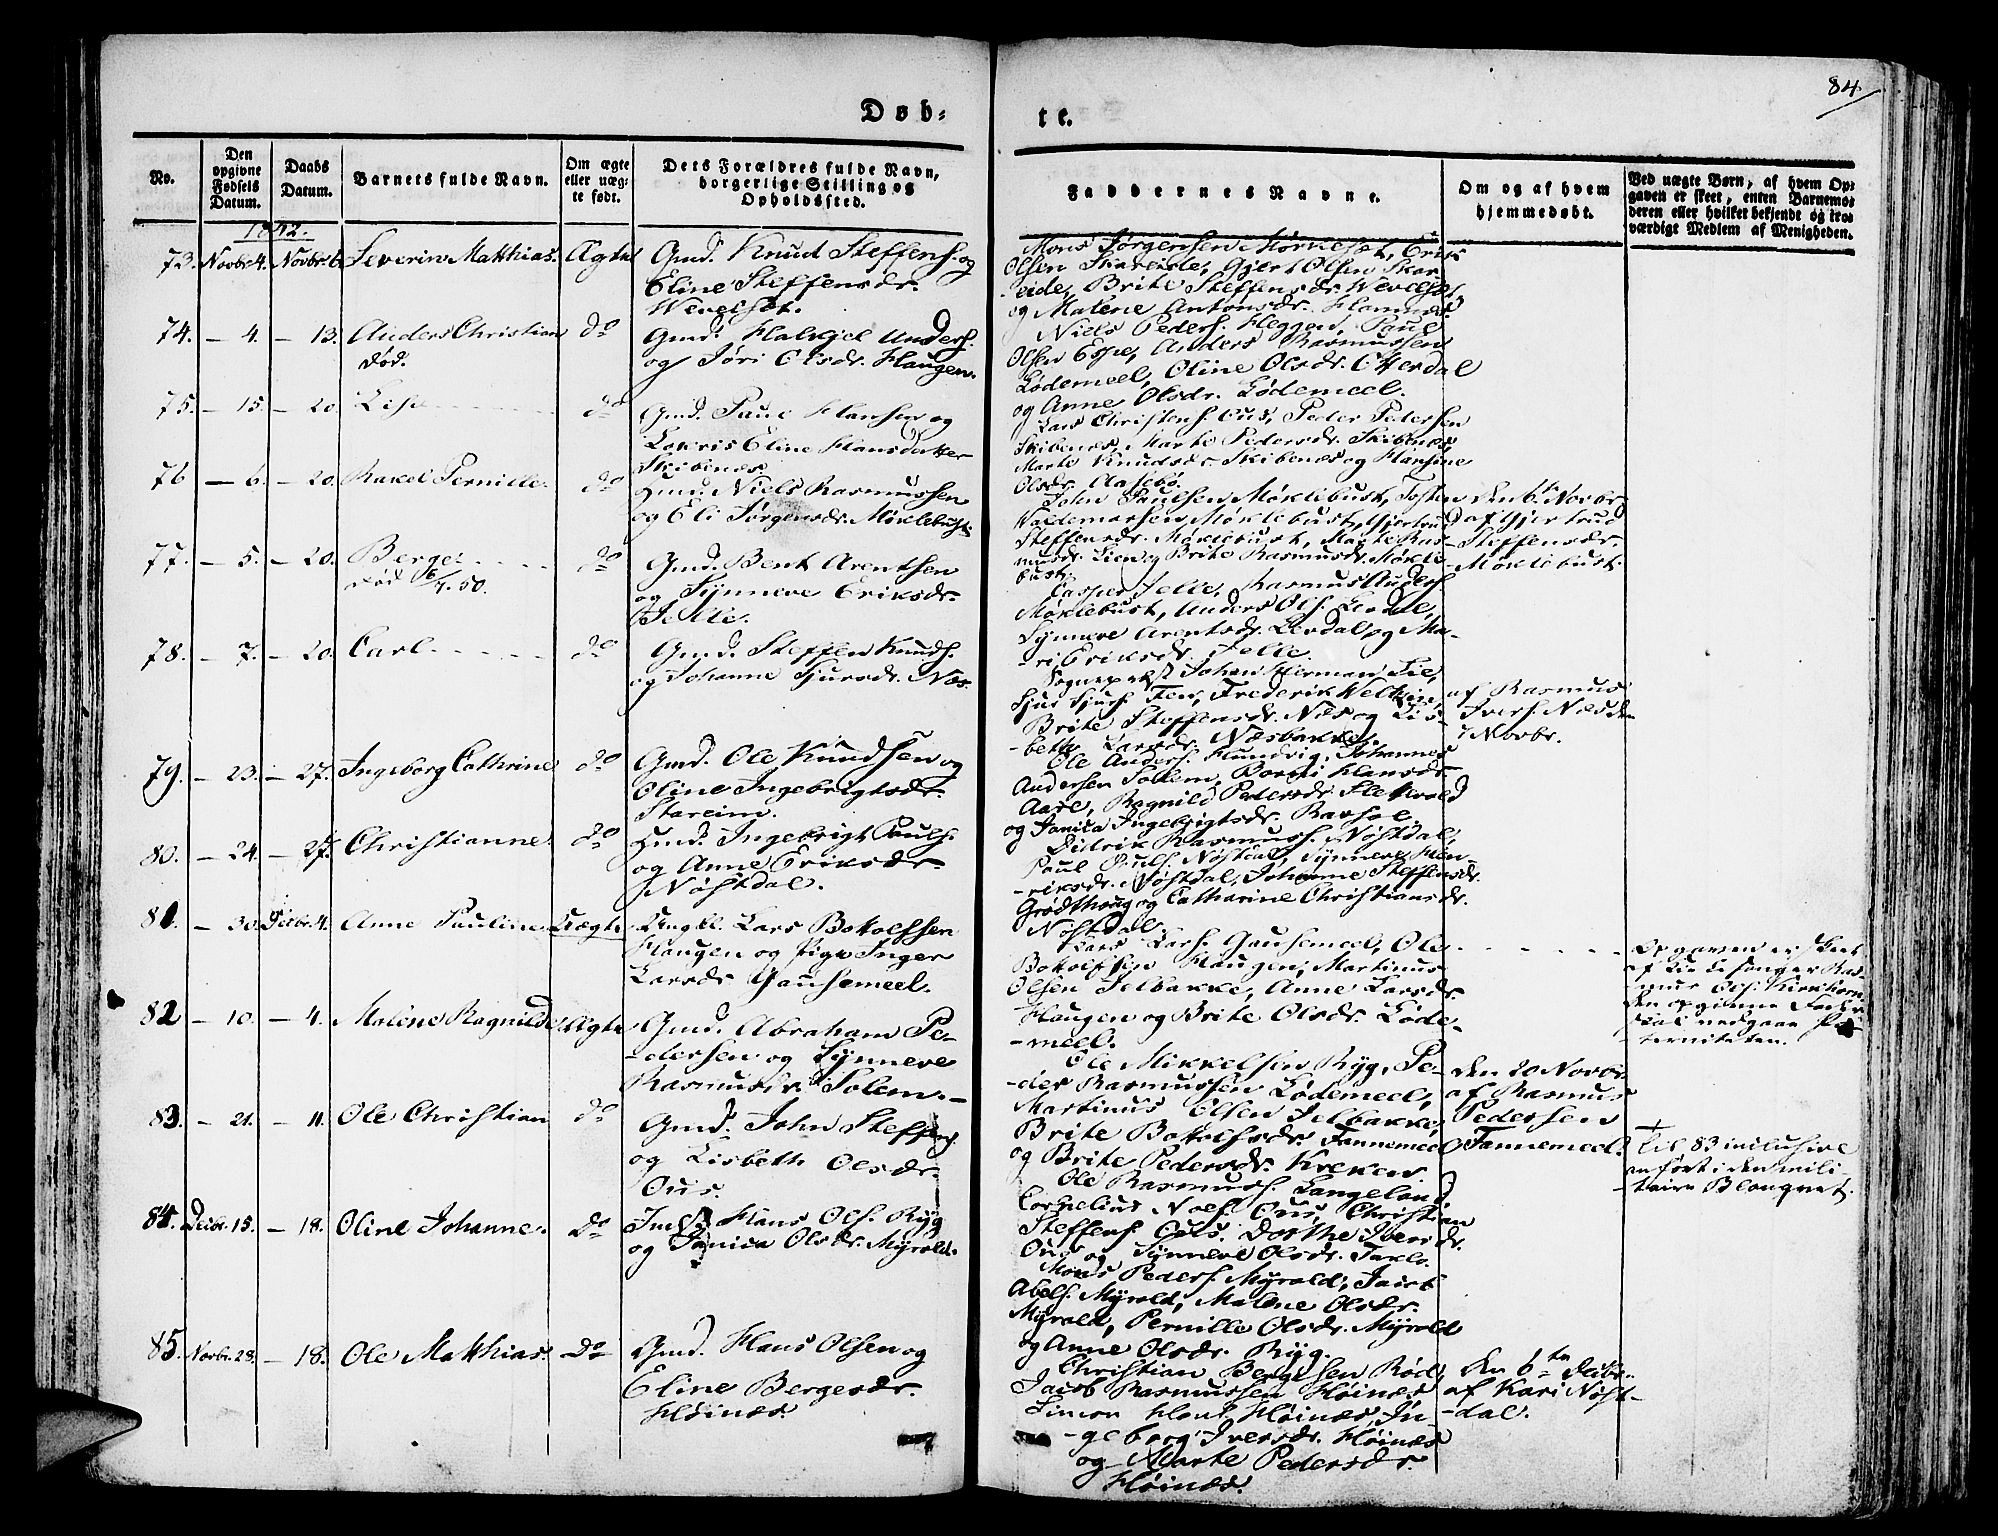 84
Døb-
te.
No.
Den opgivne Fødsels Datum.
Daabs Datum.
Barnets fulde Navn.
Om ægte eller uægte født.
Dets Forældres fulde Navn, borgerlige Stilling og Opholdssted.
Faddernes Navne.
Om og af hvem hjemmedøbt.
Ved uægte Børn, af hvem Opgaven er skeet, enten Barnemoderen eller hvilket bekjendt og troværdigt Medlem af Menigheden.
1842.
73. Novbr. 4. Novbr. 6. Severin Matthias. Ægte Gmd. Knud Steffens. og
Eline Steffensdr.
Wevelset.
Mons Jørgensen Horneset, Erik
Olsen Skareide, Gjert Olsen Skar-
eide, Brite Steffensdr. Wevelset
og Malene Antonsdr. Hamnes
74. – 4. – 13. Anders Christian do Gmd. Halvjel Anders.
død.
og Jøri Olsdr. Haugen.
Niels Peders. Heggen, Paul
Olsen Espe, Anders Rasmussen
Lødemeel, Oline Olsdr. Otterdal
og Anne Olsdr. Lødemeel.
75. – 15. – 20. Lise do Gmd. Paul Hansen og
Lovris Eline Hansdatter
Skibenæs.
Lars Christens. Ous, Peder Pedersen
Skibenæs, Marte Pedersdr. Skibenæs
Marte Knudsdr. Skibenæs og Hansine
Olsdr. Aasebø.
76 – 6. – 20. Rakel Pernille. do Hmd. Niels Rasmussen
og Eli Jørgensdr. Møklebust
John Paulsen Møklebust, Josten
Waldemarsen Møklebust, Gjertrud
Steffensdr. Møklebust, Marte Ras-
musdr. Lien og Brite Rasmusdr. Møkle-
bust.
den 6te Novbr.
af Gjertrud
Steffensdr.
Møklebust.
77. – 5. – 20. Berge. do Gmd. Bent Arentsen
død 6/7. 50.
og Synneve Eriksdr.
Jelle.
Casper Jelle, Rasmus Anders.
Møklebust, Anders Ols. Levdal,
Synneve Arentsdr. Levdal og Ma-
ri Eriksdr. Jelle.
78. – 7. – 20. Carl do Gmd. Steffen Knuds.
og Johanne Sjursdr. Næs.
Sognepræst Johan Herman Lie,
Sjur Sjurs. Fen, Frederik Welken,
Brite Steffensdr. Næs og Lis-
beth Larsdr. Næsbakke.
af Rasmus
Ivers. Næs den
7 Novbr.
79. – 23. – 27. Ingeborg Cathrine do Gmd. Ole Knudsen og
Oline Ingebrigtsdr.
Stareim.
Ole Anders. Hundvig, Johannes
Andersen Solem, Hansdr.
Aarø, Ragnild Pedersdr. Flekvold
og Janica Ingebrigtsdr.
80. – 24. – 27. Christianne. do Hmd. Ingebrigt Pauls.
og Anne Eriksdr.
Nøstdal.
Didrik Rasmuss. Nøstdal,
Paul Pauls. Nøstdal, Synneve Hen-
riksdr. Nøstdal, Johanne Steffensdr.
Grødthoug og Catharine Christiansdr.
Nøstdal.
81. – 30. Decbr. 4. Anne Pauline Uægte Ungkl. Lars Botolfsen
Haugen og Pige Inger
Larsdr. Gausemeel.
Lars Lars. Gausemeel, Ole
Botolfsen Haugen, Martinus
Olsen Jelbakke, Anne Larsdr.
Haugen og Brite Olsdr. Løde-
meel.
Opgaven er skeet
af Kirkesanger Ras-
mus Ols. Kirkhorn
den opgivne Fader
skal vedgaae Pa-
terniteten.
82 – 10. – 4. Malene Ragnilde Ægte Gmd. Abraham Pe-
dersen og Synneve
Rasmusdr. Solem. –
Ole Mikkelsen Ryg, Pe-
der Rasmussen Lødemeel,
Martinus Olsen Jelbakke,
Brite Botolfsdr. Tannemeel
og Brite Pedersdr. Kreken.
den 20 Novbr.
af Rasmus
Pedersen
Tannemeel.
83 – 21. – 11. Ole Christian do Gmd. John Steffens.
og Lisbeth Olsdr.
Ous.
Ole Rasmuss. Langeland
Cornelius Ols. Ous, Christian
Steffens. Ous, Dorthe Iversdr.
Ous og Synneve Olsdr. Taklo.
+ Til 83 inclusive
anført i den mili-
taire Blanquet.
84. Decbr. 15. – 18. Oline Johanne. Do Hans Ols. Ryg
og Janica Olsdr. Myrold.
Mons Peders. Myrold, Jacob
Abels. Myrold, Malene Olsdr.
Myrold, Pernille Olsdr. Myrold
og Anne Olsdr. Ryg.
85. Novbr. 28. – 18. Ole Matthias. Do Gmd. Hans Olsen og
Eline Bergesdr.
Høinæs.
Christian Bergesen Rød,
Jacob Rasmussen Høinæs
Simon Hans. Høinæs, In-
geborg Iversdr. Høinæs
og Marte Pedersdr.
Høinæs.
den 6te Decbr.
af Kari Nøst-
dal.